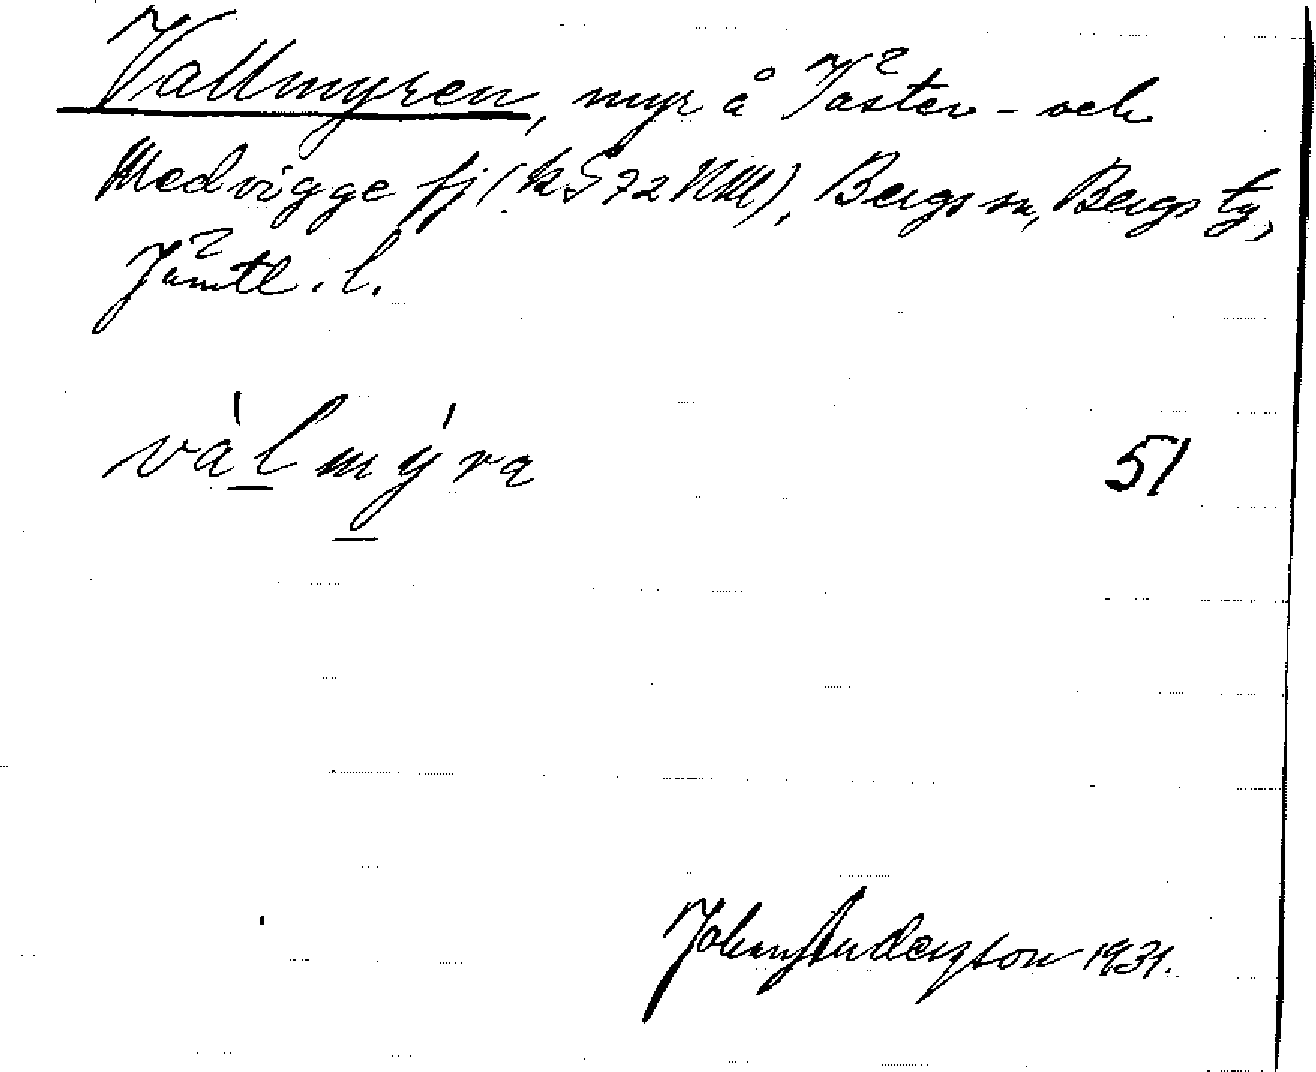 Vallmyren, myr å Väster- och
Medvigge fj (k S 72 NM), Bergs sn, Bergs tg,
Jämtl. l.
vàlmýra
51
Johny Andersson 1931.